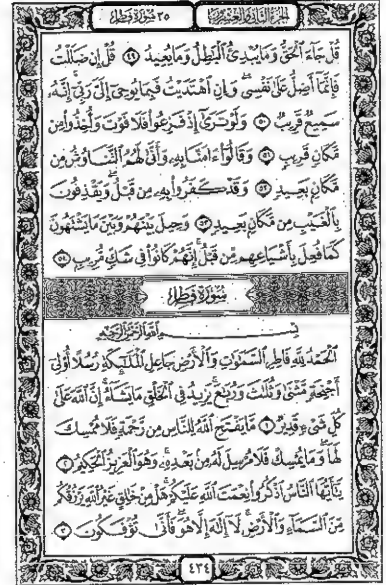 الجزء الثاني والعشرون
٣٥ سورة فاطر
قُلْ جَاءَ الْحَقُّ وَمَا يُبْدِئُ الْبَاطِلُ وَمَا يُعِيدُ ٤٩ قُلْ إِن ضَلَلْتُ
فَإِنَّمَا أَضِلُّ عَلَىٰ نَفْسِي وَإِنِ اهْتَدَيْتُ فَبِمَا يُوحِي إِلَيَّ رَبِّي إِنَّهُ
سَمِيعٌ قَرِيبٌ ٥٠ وَلَوْ تَرَىٰ إِذْ فَزِعُوا فَلَا فَوْتَ وَأُخِذُوا مِن
مَّكَانٍ قَرِيبٍ ٥١ وَقَالُوا آمَنَّا بِهِ وَأَنَّىٰ لَهُمُ التَّنَاوُشُ مِن
مَّكَانٍ بَعِيدٍ ٥٢ وَقَدْ كَفَرُوا بِهِ مِن قَبْلُ وَيَقْذِفُونَ
بِالْغَيْبِ مِن مَّكَانٍ بَعِيدٍ ٥٣ وَحِيلَ بَيْنَهُمْ وَبَيْنَ مَا يَشْتَهُونَ
كَمَا فُعِلَ بِأَشْيَاعِهِم مِّن قَبْلُ إِنَّهُمْ كَانُوا فِي شَكٍّ مُّرِيبٍ ٥٤
سورة فاطر
بِسْمِ اللَّهِ الرَّحْمَٰنِ الرَّحِيمِ
الْحَمْدُ لِلَّهِ فَاطِرِ السَّمَاوَاتِ وَالْأَرْضِ جَاعِلِ الْمَلَائِكَةِ رُسُلًا أُولِي
أَجْنِحَةٍ مَّثْنَىٰ وَثُلَاثَ وَرُبَاعَ يَزِيدُ فِي الْخَلْقِ مَا يَشَاءُ إِنَّ اللَّهَ عَلَىٰ
كُلِّ شَيْءٍ قَدِيرٌ ١ مَّا يَفْتَحِ اللَّهُ لِلنَّاسِ مِن رَّحْمَةٍ فَلَا مُمْسِكَ
لَهَا وَمَا يُمْسِكْ فَلَا مُرْسِلَ لَهُ مِن بَعْدِهِ وَهُوَ الْعَزِيزُ الْحَكِيمُ ٢
يَا أَيُّهَا النَّاسُ اذْكُرُوا نِعْمَتَ اللَّهِ عَلَيْكُمْ هَلْ مِنْ خَالِقٍ غَيْرُ اللَّهِ يَرْزُقُكُم
مِّنَ السَّمَاءِ وَالْأَرْضِ لَا إِلَٰهَ إِلَّا هُوَ فَأَنَّىٰ تُؤْفَكُونَ ٣
٤٣٤